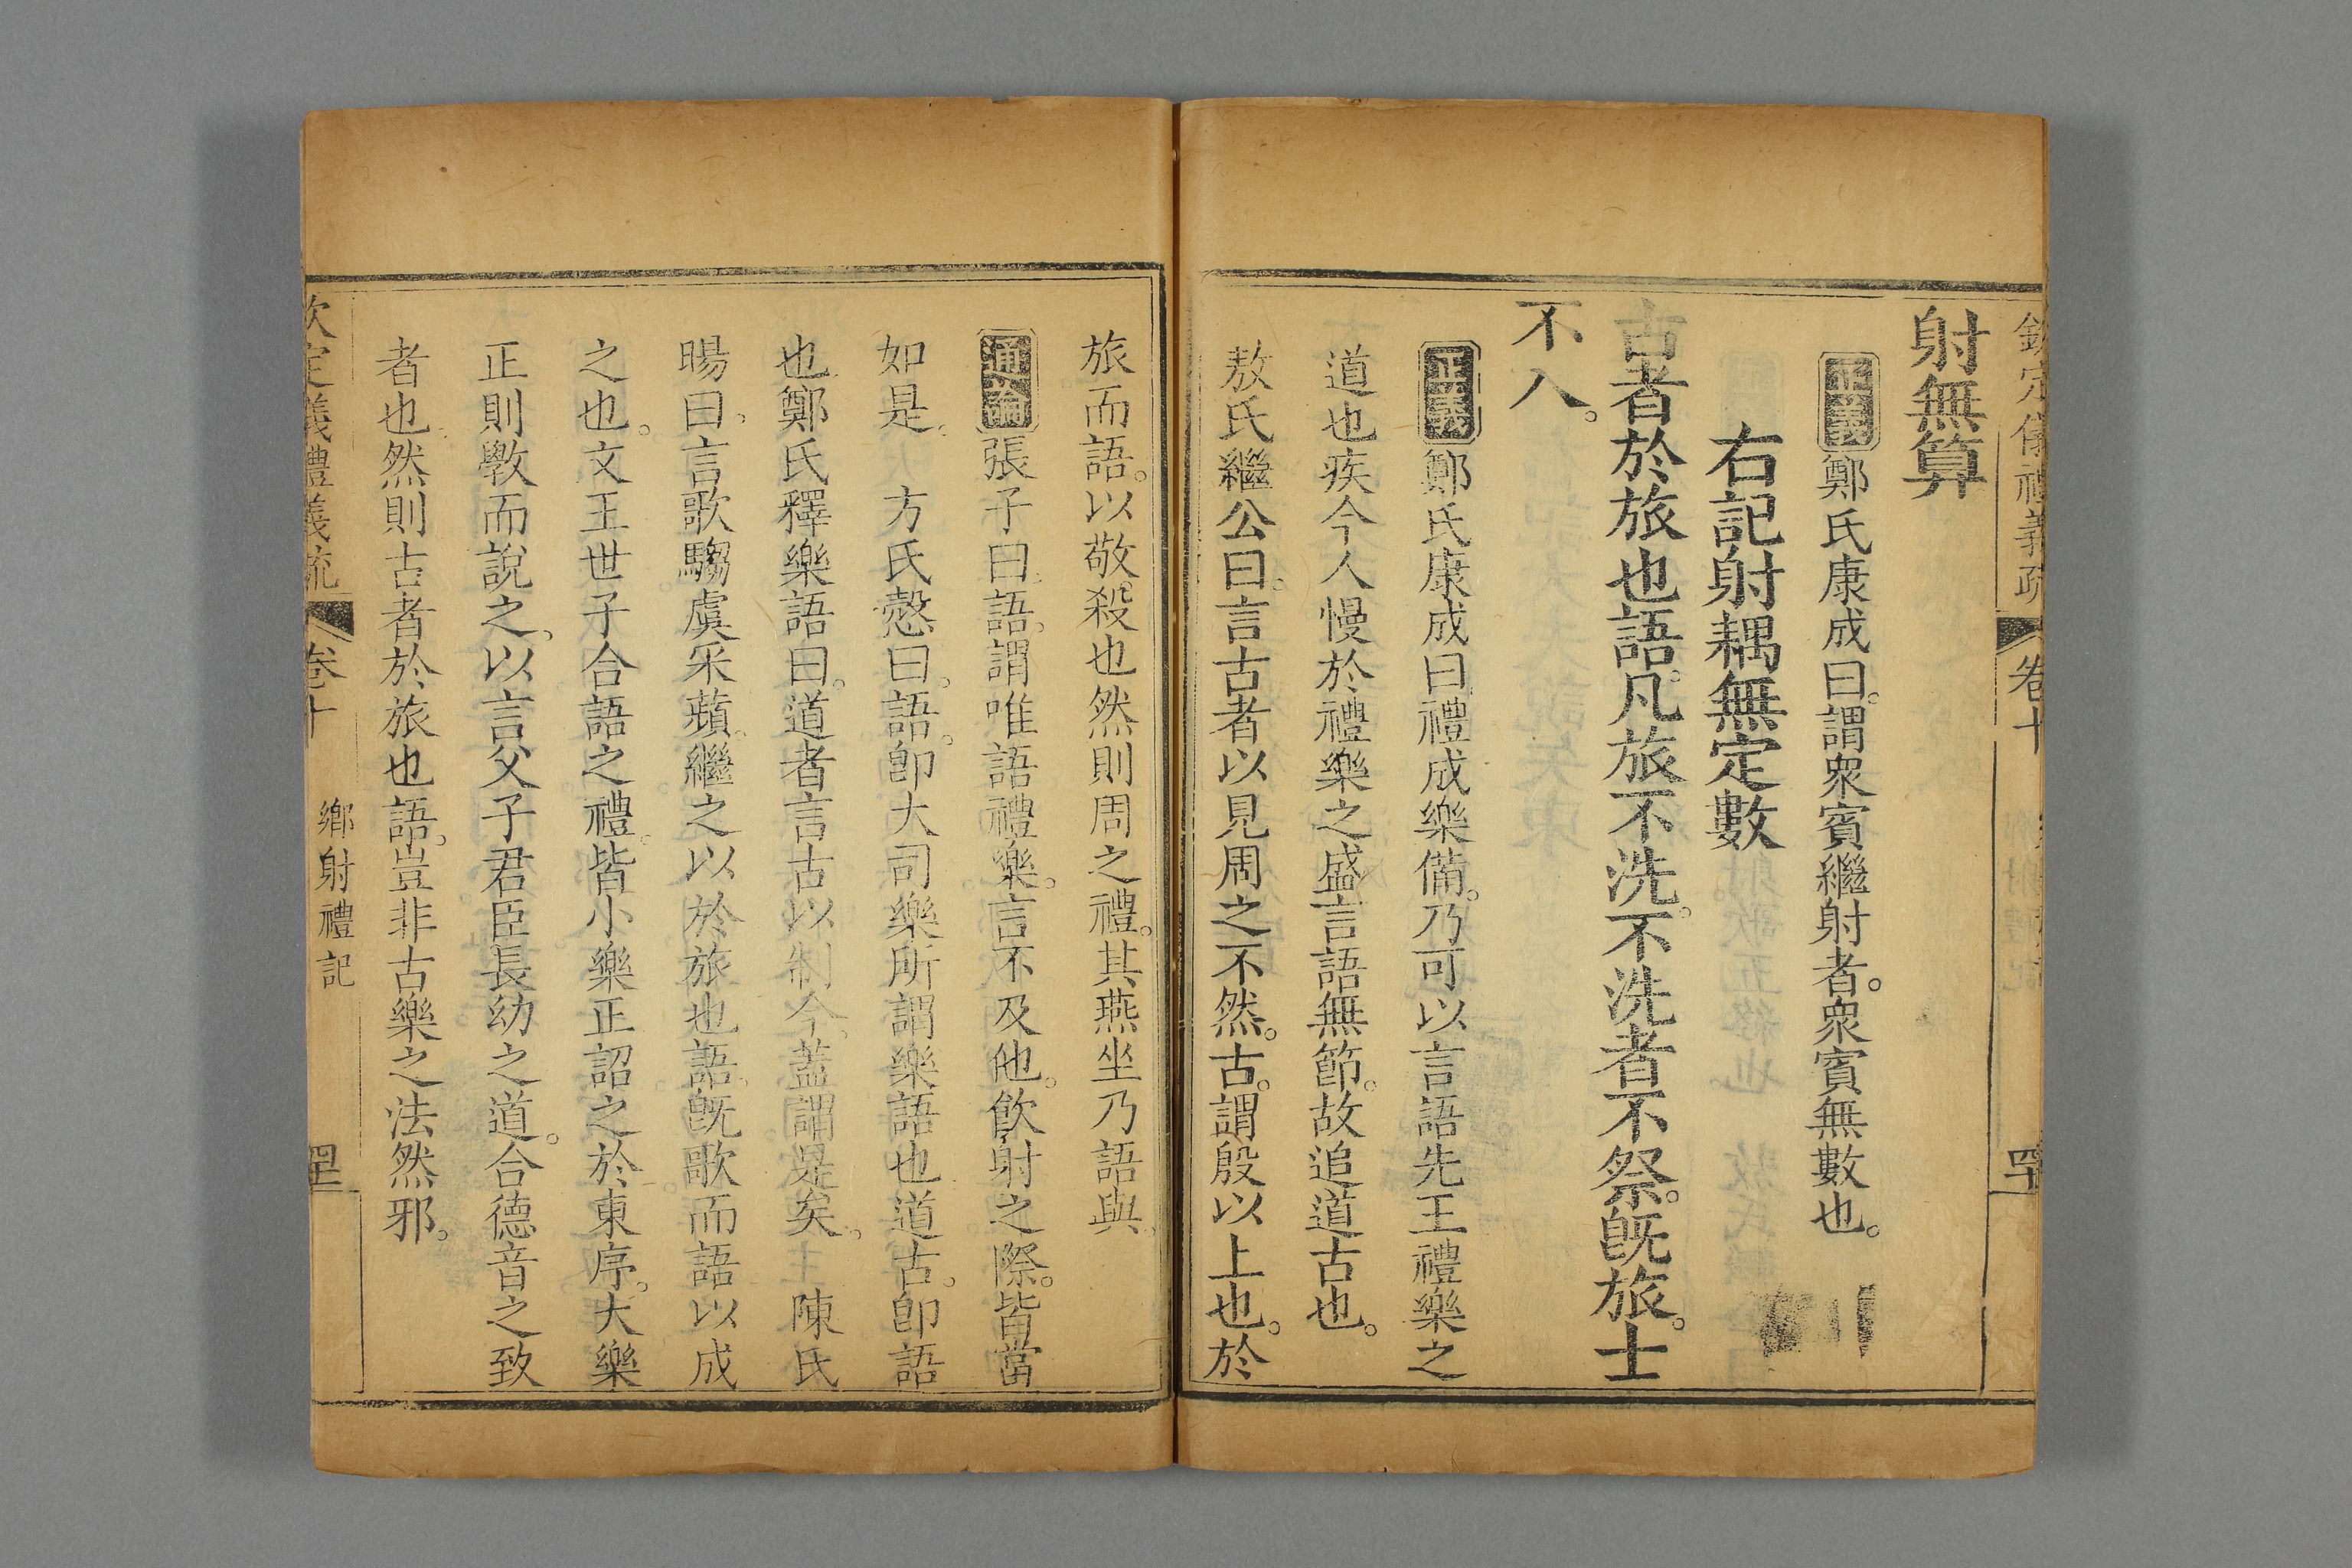 欽定儀禮義疏 卷十 四十
射無算
正義鄭氏康成曰。謂衆賓繼射者。衆賓無數也。
右記射耦無定數
古者於旅也語。凡旅不洗。不洗者不祭。旣旅。士
不入。
正義鄭氏康成曰禮成樂備。乃可以言語先王禮樂之
道也疾今人慢於禮樂之盛言語無節。故追道古也。
敖氏繼公曰。言古者以見周之不然。古。謂殷以上也。於
旅而語。以敬殺也然則周之禮。其燕坐乃語與。
通論張子曰。語。謂唯語禮樂。言不及他。飮射之際。皆當
如是。方氏慤曰。語。卽大司樂所謂樂語也道古。卽語
也鄭氏釋樂語曰。道者言古以制今。蓋謂是矣。陳氏
暘曰。言歌騶虞采蘋。繼之以於旅也語。旣歌而語以成
之也。文王世子合語之禮。皆小樂正詔之於東序。大樂
正則斆而說之。以言父子君臣長幼之道。合德音之致
者也。然則古者於旅也語。豈非古樂之法然邪。
欽定儀禮義疏 卷十 鄉射禮記